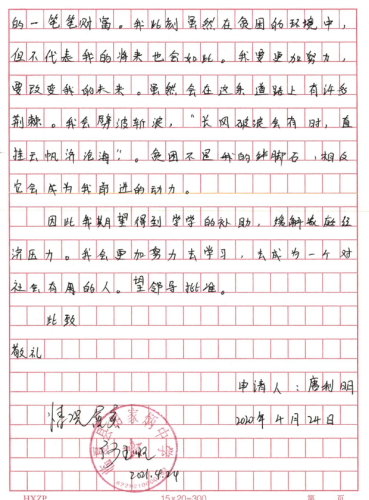 的一笔笔财富。我此刻虽然在贫困的环境中，
但不代表我的将来也会如此。我要更加努力，
要改变我的未来。虽然会在这条道路上有许多
荆棘。我会劈波斩浪，“长风破浪会有时，直
挂云帆济沧海”。贫困不是我的绊脚石，相反
它会成为我前进的动力。
因此我期望得到学学的补助，缓解家庭经
济压力。我会更加努力去学习，去成为一个对
社会有用的人。望领导批准。
此致
敬礼
申请人：唐利明
情况属实
2020年4月24日
2021.4.24
HXZP
15×20=300
第 页